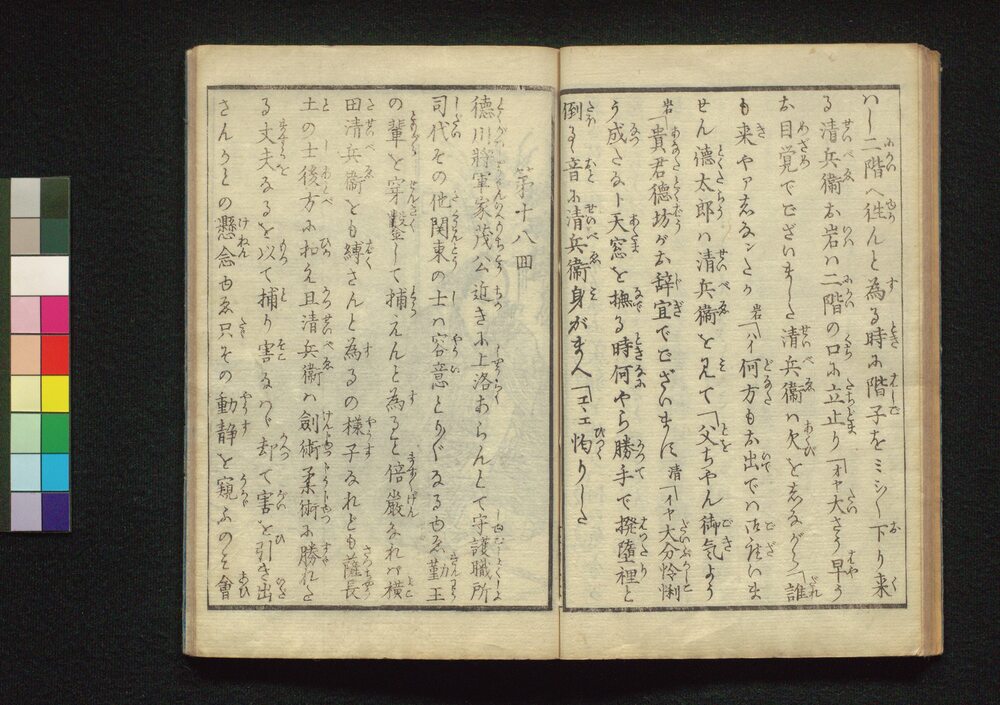 ハし二階へ往んと為る時に階子をミシ〱下り来
る清兵衛お岩ハ二階の口に立止り「オヤ大さう早う
お目覚でございました清兵衛ハ欠を志ながら「誰
も来やア志なンたか 岩「ヘイ何方もお出でハ御座いま
せん徳太郎ハ清兵衛を見て「父ちやん御気よう
岩「貴君徳坊がお辞宜でございますに 清「イヤ大分怜悧
う成たな ト天窓を撫る時何やら勝手で撥墮裡と
倒る音に清兵衛身がまへ「エヽエ恟りした
第十八回
徳川将軍家茂公近きに上洛あらんとて守護職所
司代その他関東の士ハ容意とり〲なるゆゑ菫王
の輩を穿鑿して捕えんと為ると倍嚴なれバ横
田清兵衛をも縛さんと為るの様子なれども薩長
土の士後方に扣え且清兵衛ハ劍術柔術に勝れた
る丈夫なるを以て捕り害なハゞ却て害を引き出
さんかとの懸念ゆゑ只その動静を窺ふのミ會